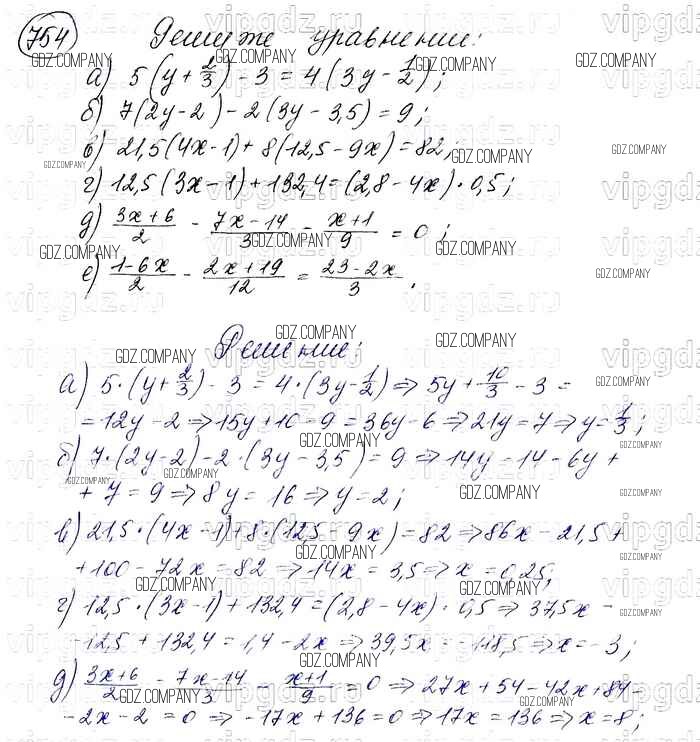 754 Решите уравнение:
а) 5(y+2/3)-3=4(3y-1/2);
б) 7(2y-2)-2(3y-3,5)=9;
в) 21,5(4x-1)+8(12,5-9x)=82;
г) 12,5(3x-1)+132,4=(2,8-4x)·0,5;
д) (3x+6)/2 - (7x-14)/3 - (x+1)/9 = 0;
е) (1-6x)/2 - (2x+19)/12 = (23-2x)/3.
Решение:
а) 5·(y+2/3)-3=4·(3y-1/2)⇒5y+10/3-3=
=12y-2⇒15y+10-9=36y-6⇒21y=7⇒y=1/3;
б) 7·(2y-2)-2·(3y-3,5)=9⇒14y-14-6y+
+7=9⇒8y=16⇒y=2;
в) 21,5·(4x-1)+8·(12,5-9x)=82⇒86x-21,5+
+100-72x=82⇒14x=3,5⇒x=0,25;
г) 12,5·(3x-1)+132,4=(2,8-4x)·0,5⇒37,5x-
-12,5+132,4=1,4-2x⇒39,5x=-118,5⇒x=-3;
д) (3x+6)/2 - (7x-14)/3 - (x+1)/9 = 0⇒27x+54-42x+84-
-2x-2=0⇒-17x+136=0⇒17x=136⇒x=8;
GDZ.COMPANY
vipgdz.ru